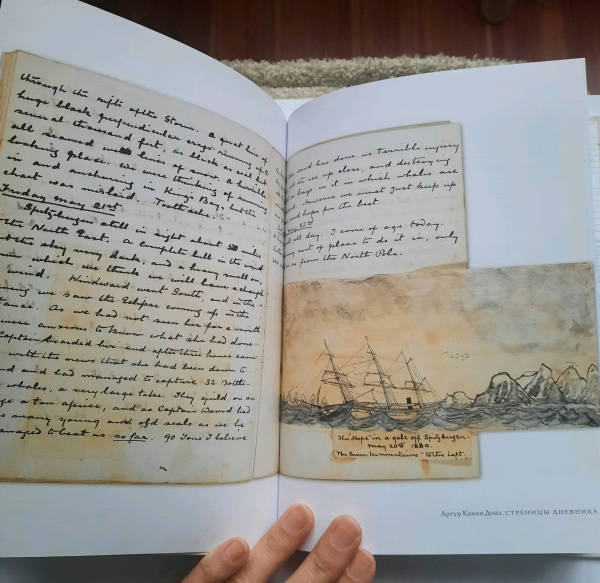 through the rifts of the Storm. A great line of
huge black perpendicular crags running up
several thousand feet, as black as coal but
all seamed with lines of snow. a horrible
looking place. we were thinking of running
in and anchoring in King's Bay. but the
chart was mislaid.
Friday May 21st
Spitzbergen still in sight about miles
the North East. A complete lull in the wind
but the sky very dark, and a heavy swell on,
from which we think we will have a change
wind. Windward went South, and in the
we saw the Eclipse coming up in the
distance. As we had not seen her for a month
were anxious to know what she had done
Captain boarded her and after three hours came
with the news that she had been down to
and had managed to capture 32 Bottle-
whales, a very large take. They yield on an
a ton apiece, and as Captain David had
many young and old seals as we he
managed to beat us so far. 90 Tons I believe
and has done us terrible injury
the ice up close, and destroying
in it in which whales are
. However we must just keep up
and hope for the best.
May 22nd
all day. I come of age today.
sort of place to do it in, only
from the North Pole.
The 'Hope' in a gale off Spitzbergen.
May 20th 1880.
to the Left.
Артур Конан Дойл. СТРАНИЦЫ ДНЕВНИКА